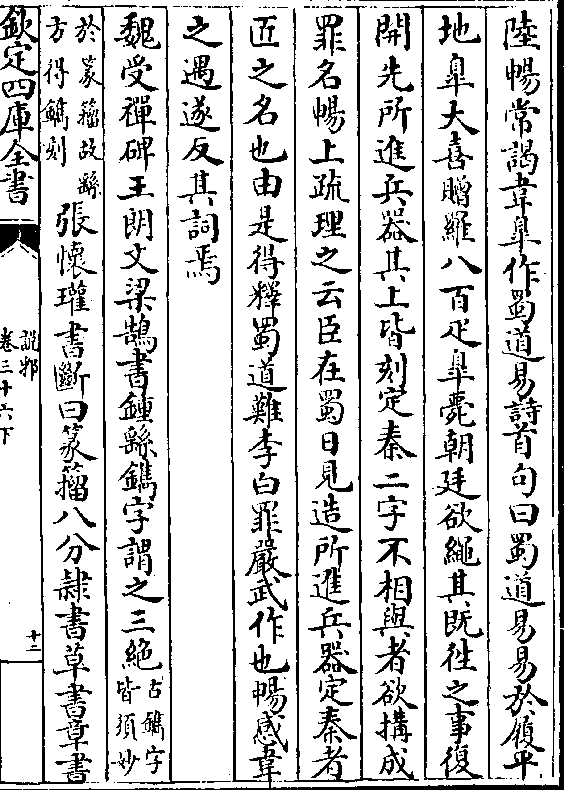 陸暢常謁韋臯作蜀道易詩首句曰蜀道易易於履平
地臯大喜贈羅八百疋臯薨朝廷欲繩其既徃之事復
開先所進兵器其上皆刻定秦二字不相與者欲搆成
罪名暢上疏理之云臣在蜀日見造所進兵器定秦者
匠之名也由是得釋蜀道難李白罪嚴武作也暢感韋
之遇遂反其詞焉
魏受禪碑王朗文梁鵠書鍾繇鐫字謂之三絶
古鐫字
皆須妙
於篆籀故繇
方得鐫刻
張懷瓘書斷曰篆籀八分隷書草書章書
欽定四庫全書
說郛
卷三十六下
十二